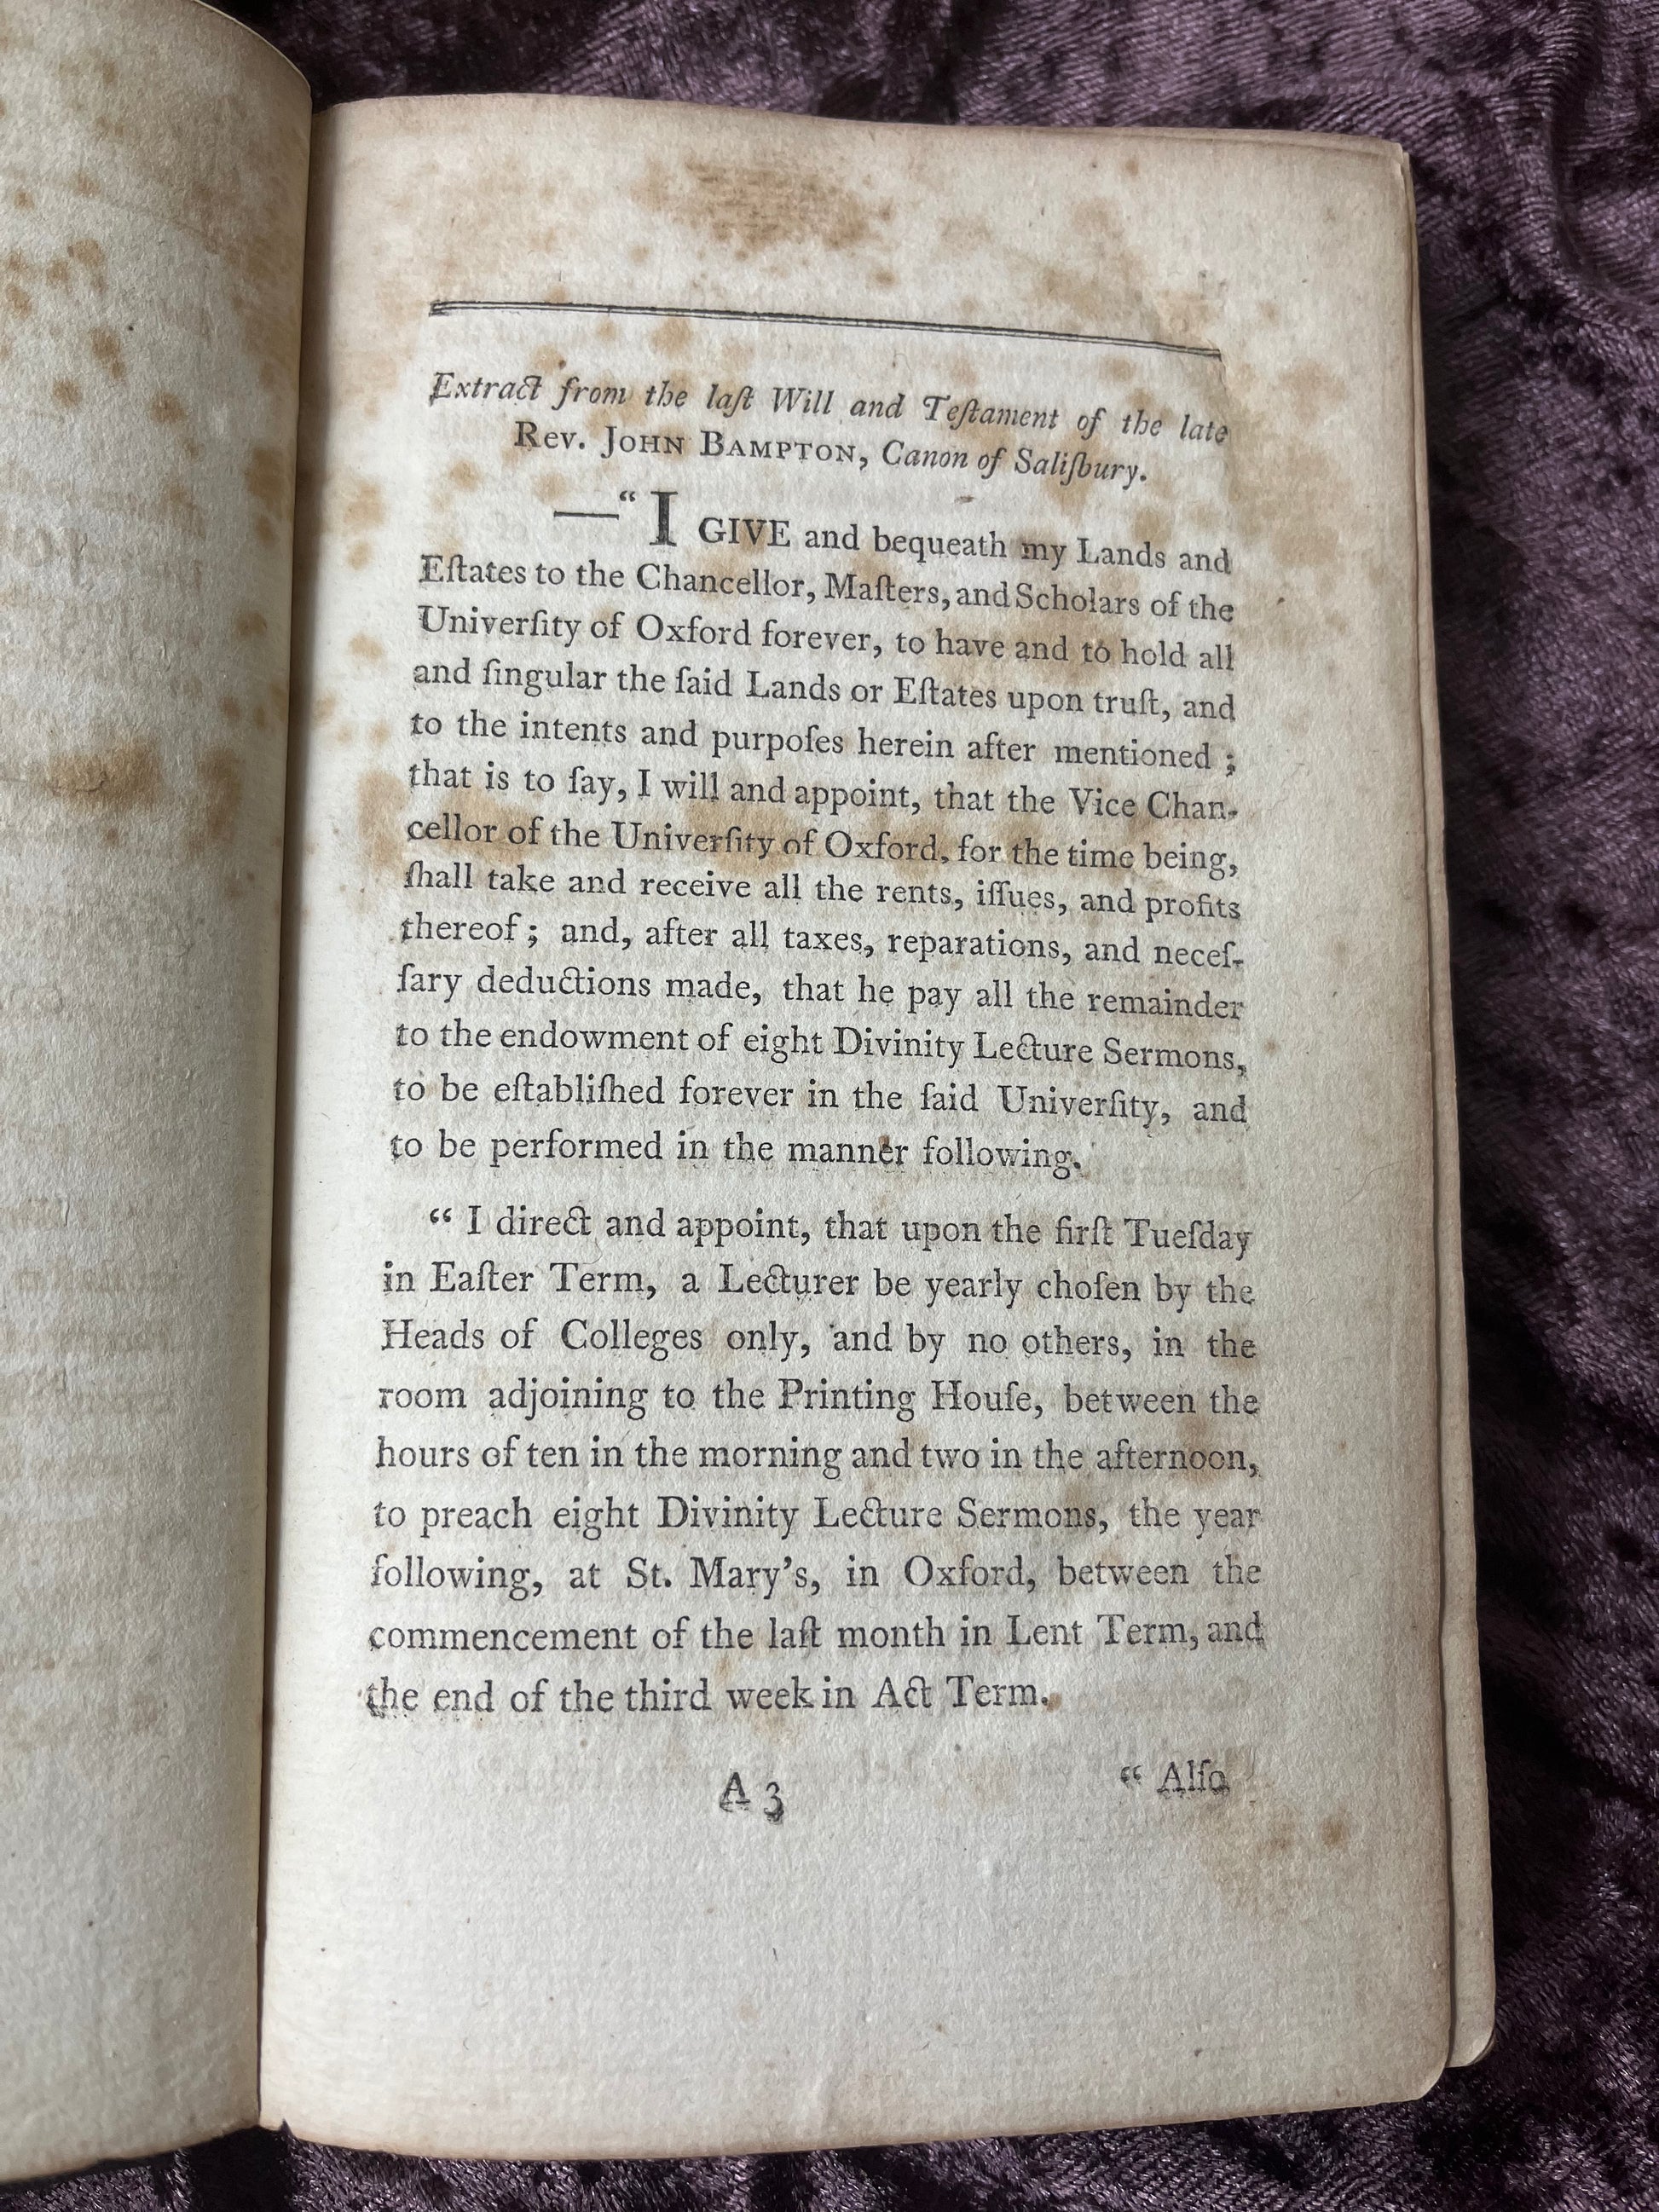 Extract from the laſt Will and Teſtament of the late
Rev. John Bampton, Canon of Saliſbury.
—“ I GIVE and bequeath my Lands and
Eſtates to the Chancellor, Maſters, and Scholars of the
Univerſity of Oxford forever, to have and to hold all
and ſingular the ſaid Lands or Eſtates upon truſt, and
to the intents and purpoſes herein after mentioned ;
that is to ſay, I will and appoint, that the Vice Chan-
cellor of the Univerſity of Oxford, for the time being,
ſhall take and receive all the rents, iſſues, and profits
thereof ; and, after all taxes, reparations, and neceſ-
ſary deductions made, that he pay all the remainder
to the endowment of eight Divinity Lecture Sermons,
to be eſtabliſhed forever in the ſaid Univerſity, and
to be performed in the manner following.
“ I direct and appoint, that upon the firſt Tueſday
in Eaſter Term, a Lecturer be yearly choſen by the
Heads of Colleges only, and by no others, in the
room adjoining to the Printing Houſe, between the
hours of ten in the morning and two in the afternoon,
to preach eight Divinity Lecture Sermons, the year
following, at St. Mary’s, in Oxford, between the
commencement of the laſt month in Lent Term, and
the end of the third week in Act Term.
A 3 “ Alſo